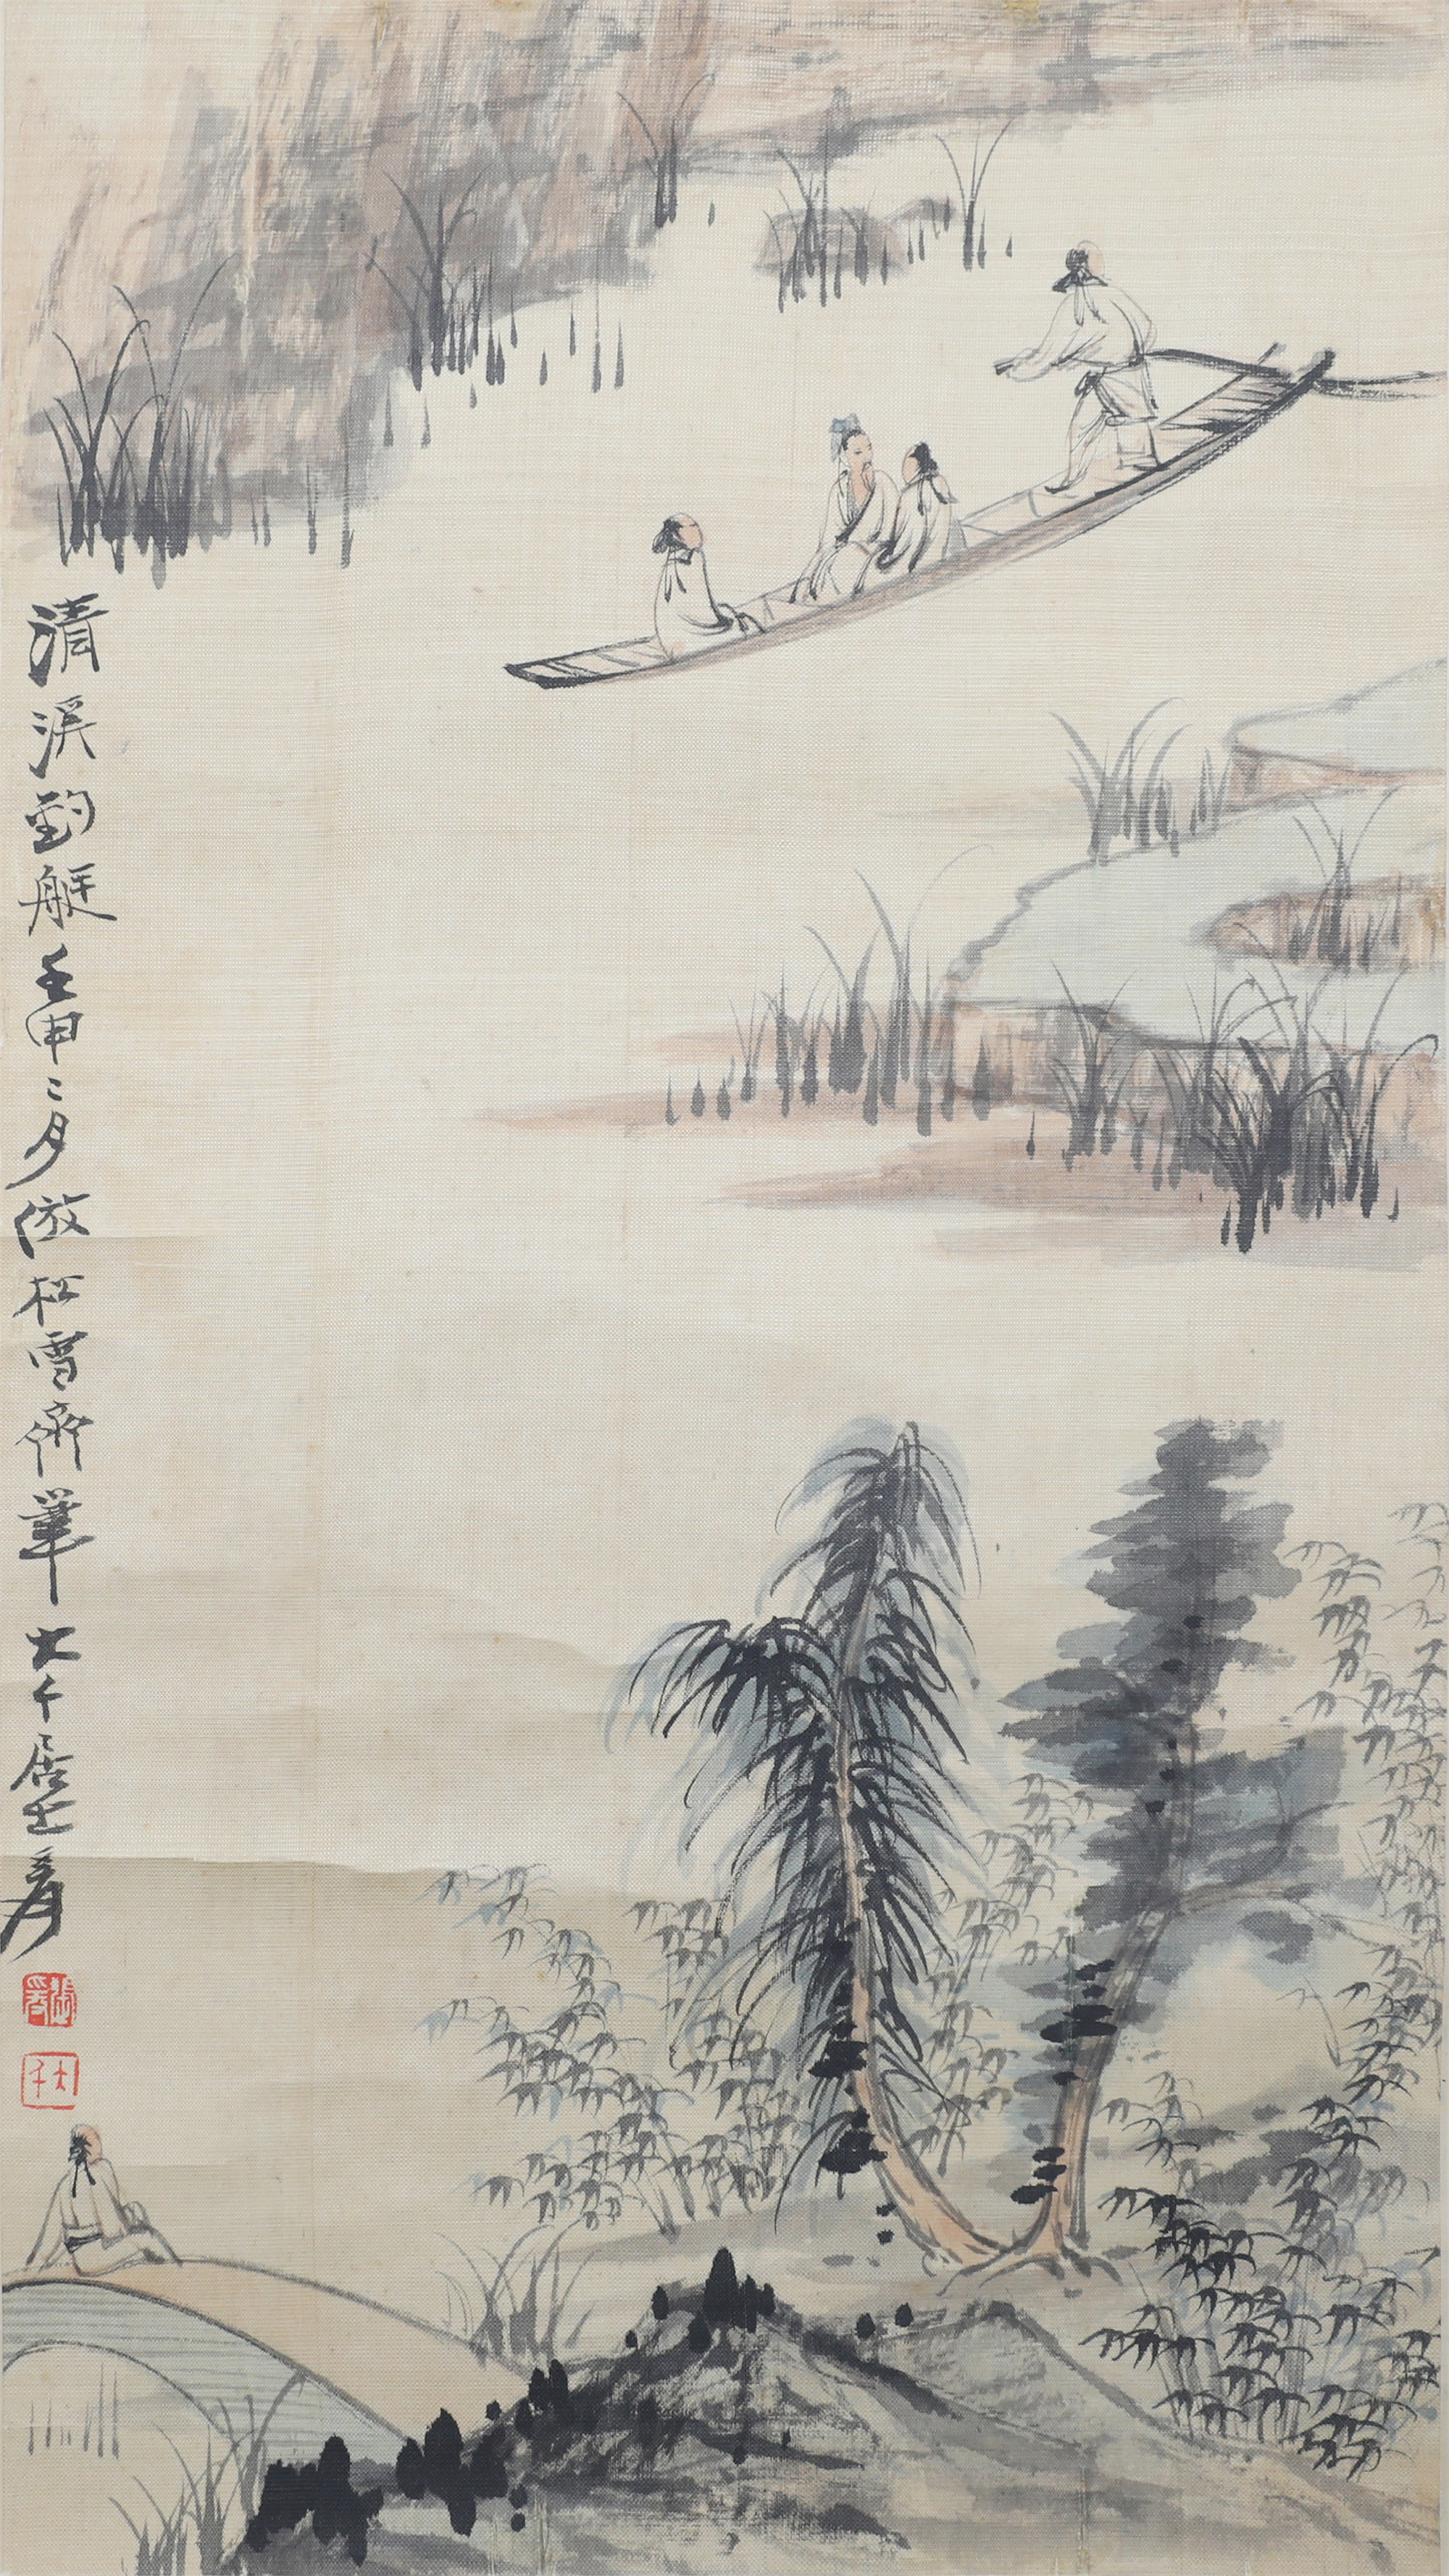 清溪釣艇壬申二月倣松雪齋筆大千居士爰
張爰
大千